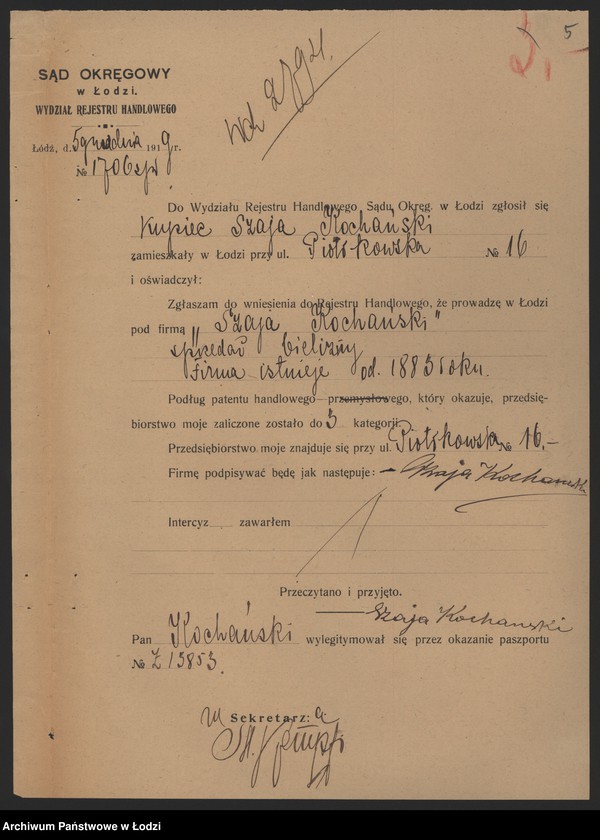 5
3,-
SĄD OKRĘGOWY
w Łodzi.
WYDZIAŁ REJESTRU HANDLOWEGO
Łódź, d. 5 grudnia 1919 r.
№ 1706
Do Wydziału Rejestru Handlowego Sądu Okręg. w Łodzi zgłosił się
Kupiec Szaja Kochański
zamieszkały w Łodzi przy ul. Piotrkowska № 16
i oświadczył:
Zgłaszam do wniesienia do Rejestru Handlowego, że prowadzę w Łodzi
pod firmą „Szaja Kochański"
sprzedaż bielizny
Firma istnieje od 1883 roku.
Podług patentu handlowego-przemysłowego, który okazuje, przedsię-
biorstwo moje zaliczone zostało do 3 kategorji.
Przedsiębiorstwo moje znajduje się przy ul. Piotrkowska № 16.-
Firmę podpisywać będę jak następuje: - Szaja Kochanski
Intercyz zawarłem
Przeczytano i przyjęto.
Szaja Kochanski
Pan Kochański wylegitymował się przez okazanie paszportu
№ Z 13853.
Sekretarz:
Archiwum Państwowe w Łodzi